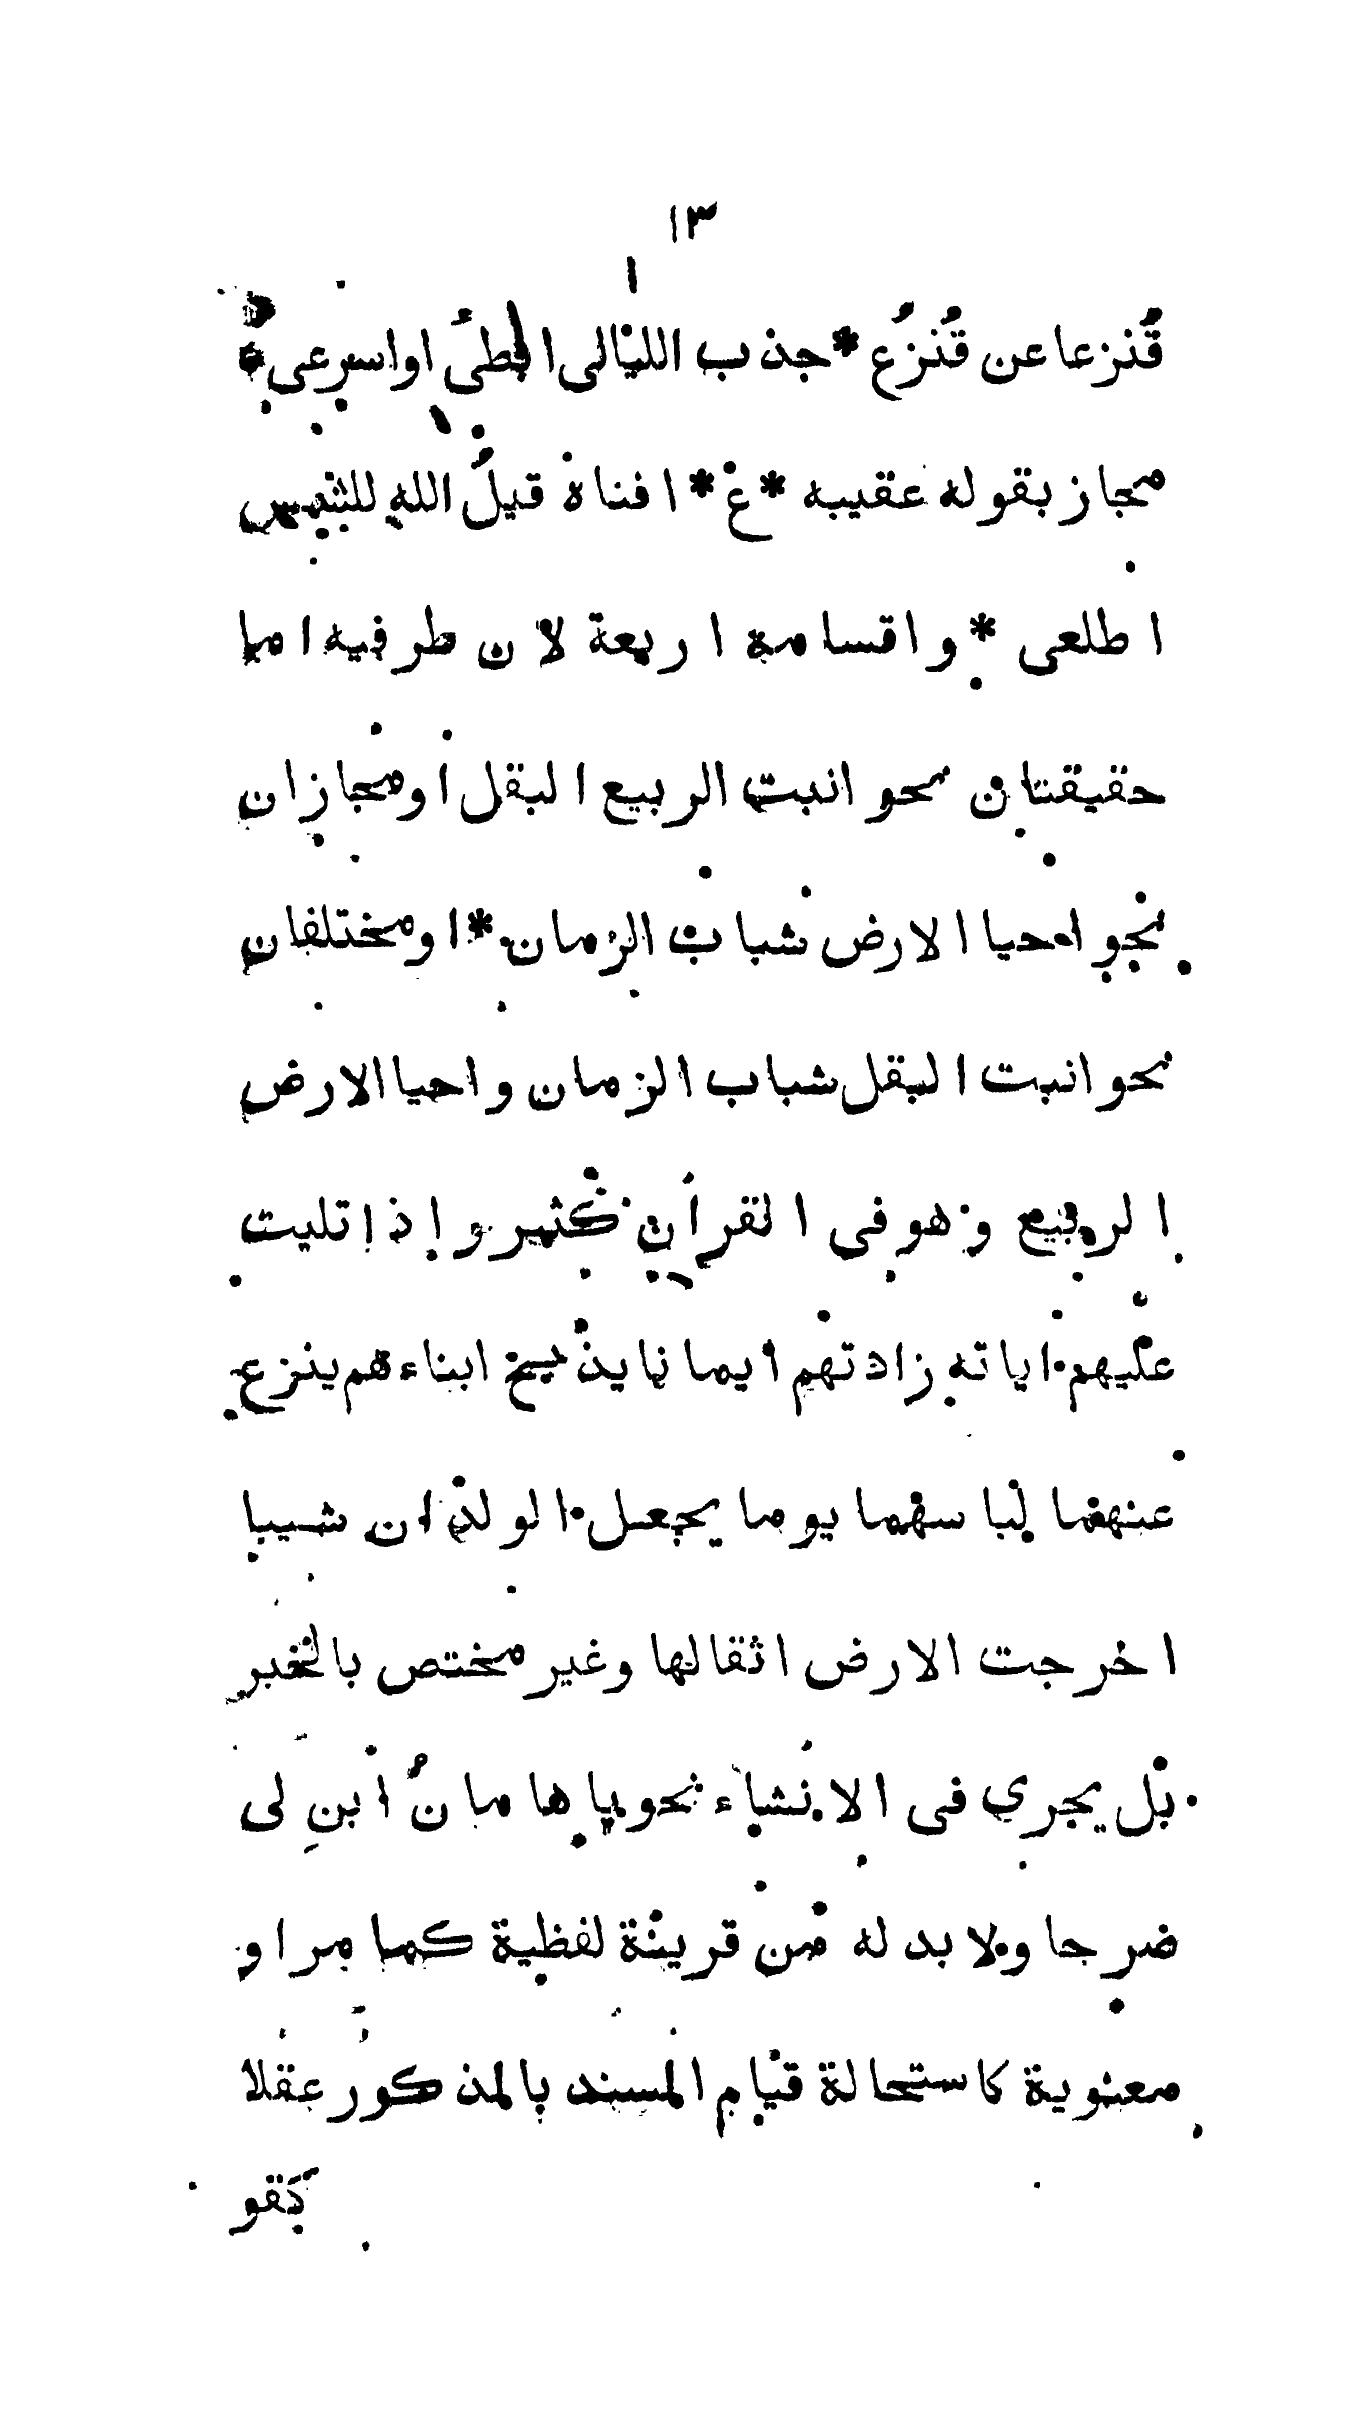 ١٣
قُنزعا عن قُنزُع * جذب الليالى ابطئ او اسرعى *
مجاز بقوله عقيبه * ع * افناه قيلُ الله للشمس
اطلعى * واقسامه اربعة لان طرفيه اما
حقيقتان نحو انبت الربيع البقل او مجازان
نحو احيا الارض شباب الزمان * او مختلفان
نحو انبت البقل شباب الزمان واحيا الارض
الربيع وهو فى القرآن كثير واذا تليت
عليهم اياته زادتهم ايمانا يذبح ابناءهم ينزع
عنهما لباسهما يوما يجعل الولدان شيبا
اخرجت الارض اثقالها وغير مختص بالخبر
بل يجري فى الانشاء نحو ياهامانُ ابنِ لى
صرحا ولا بد له من قرينة لفظية كما مر او
معنوية كاستحالة قيام المسند بالمذكور عقلا
كقو